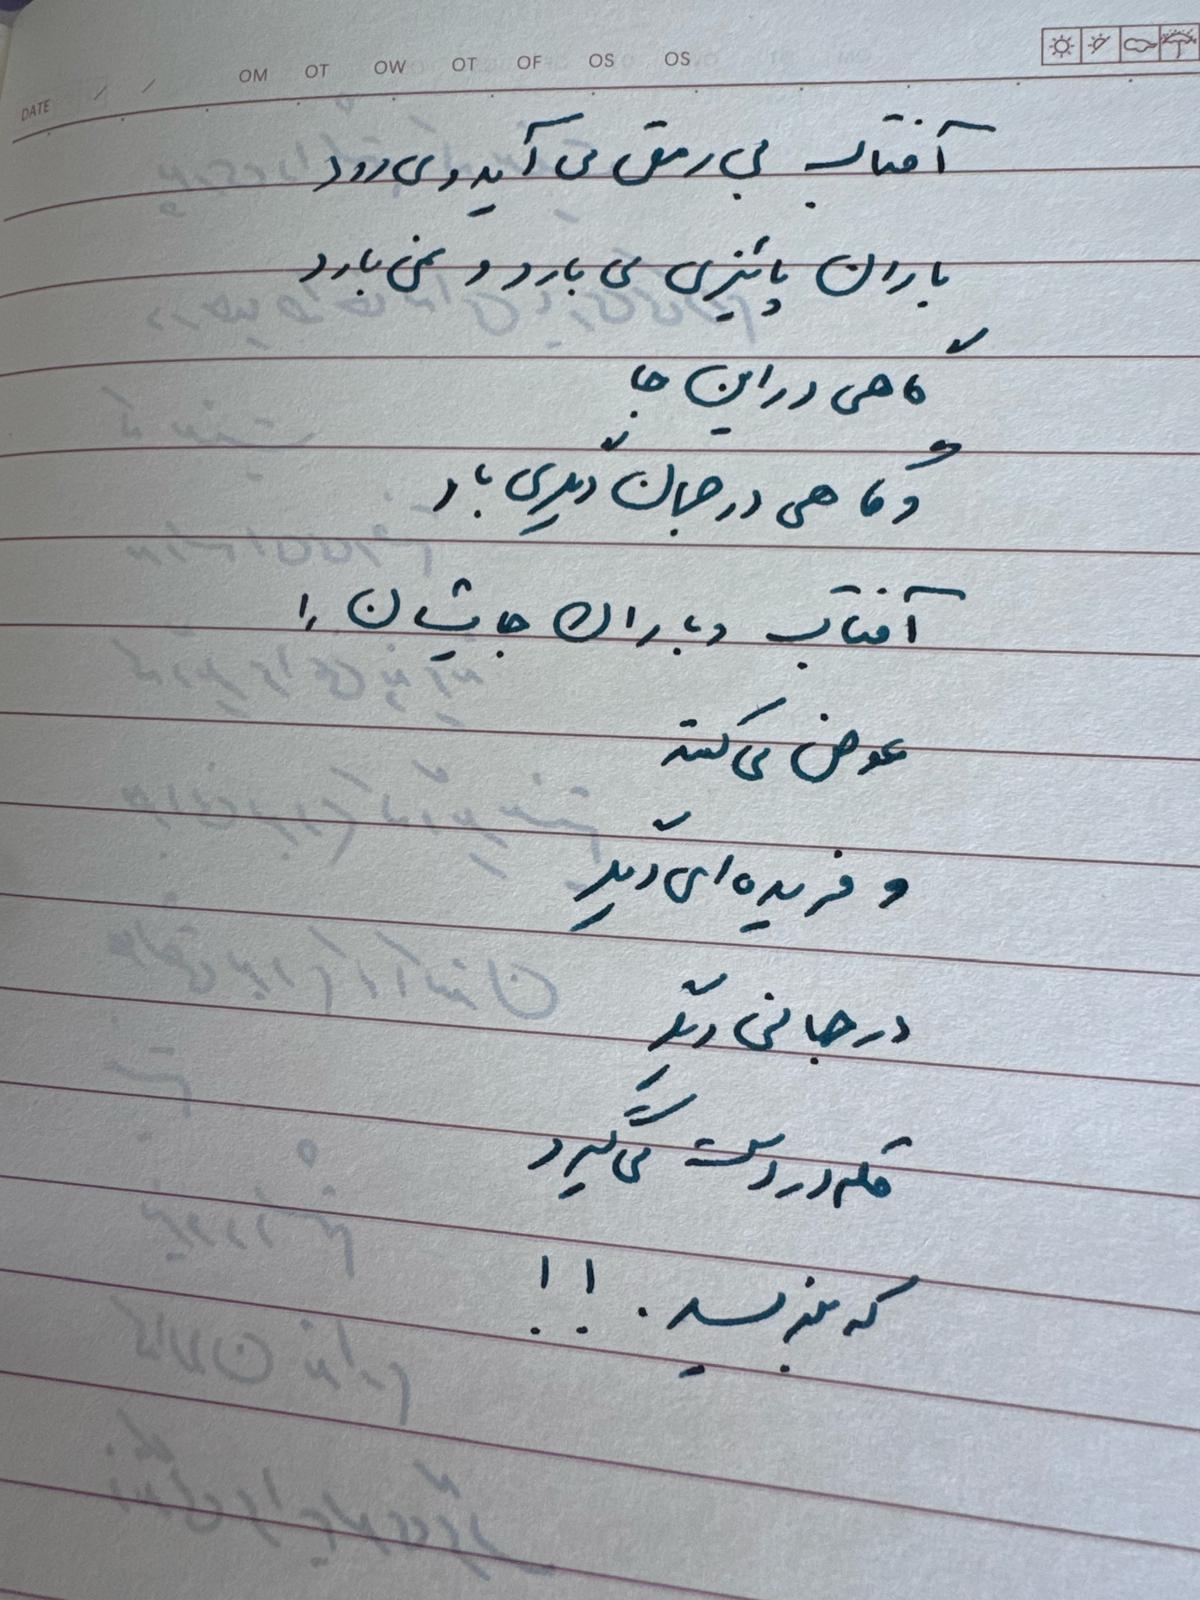 DATE / / OM OT OW OT OF OS OS
آفتاب بی رمق می آید و می رود
باران پائیزی می بارد و نمی بارد
گاهی در این جا
و گاهی در جهان دیگری بار
آفتاب و باران جایشان را
عوض می کنند
و فریده ای دیگر
در جهانی دیگر
قلم در دست می گیرد
که بنویسد . ! !